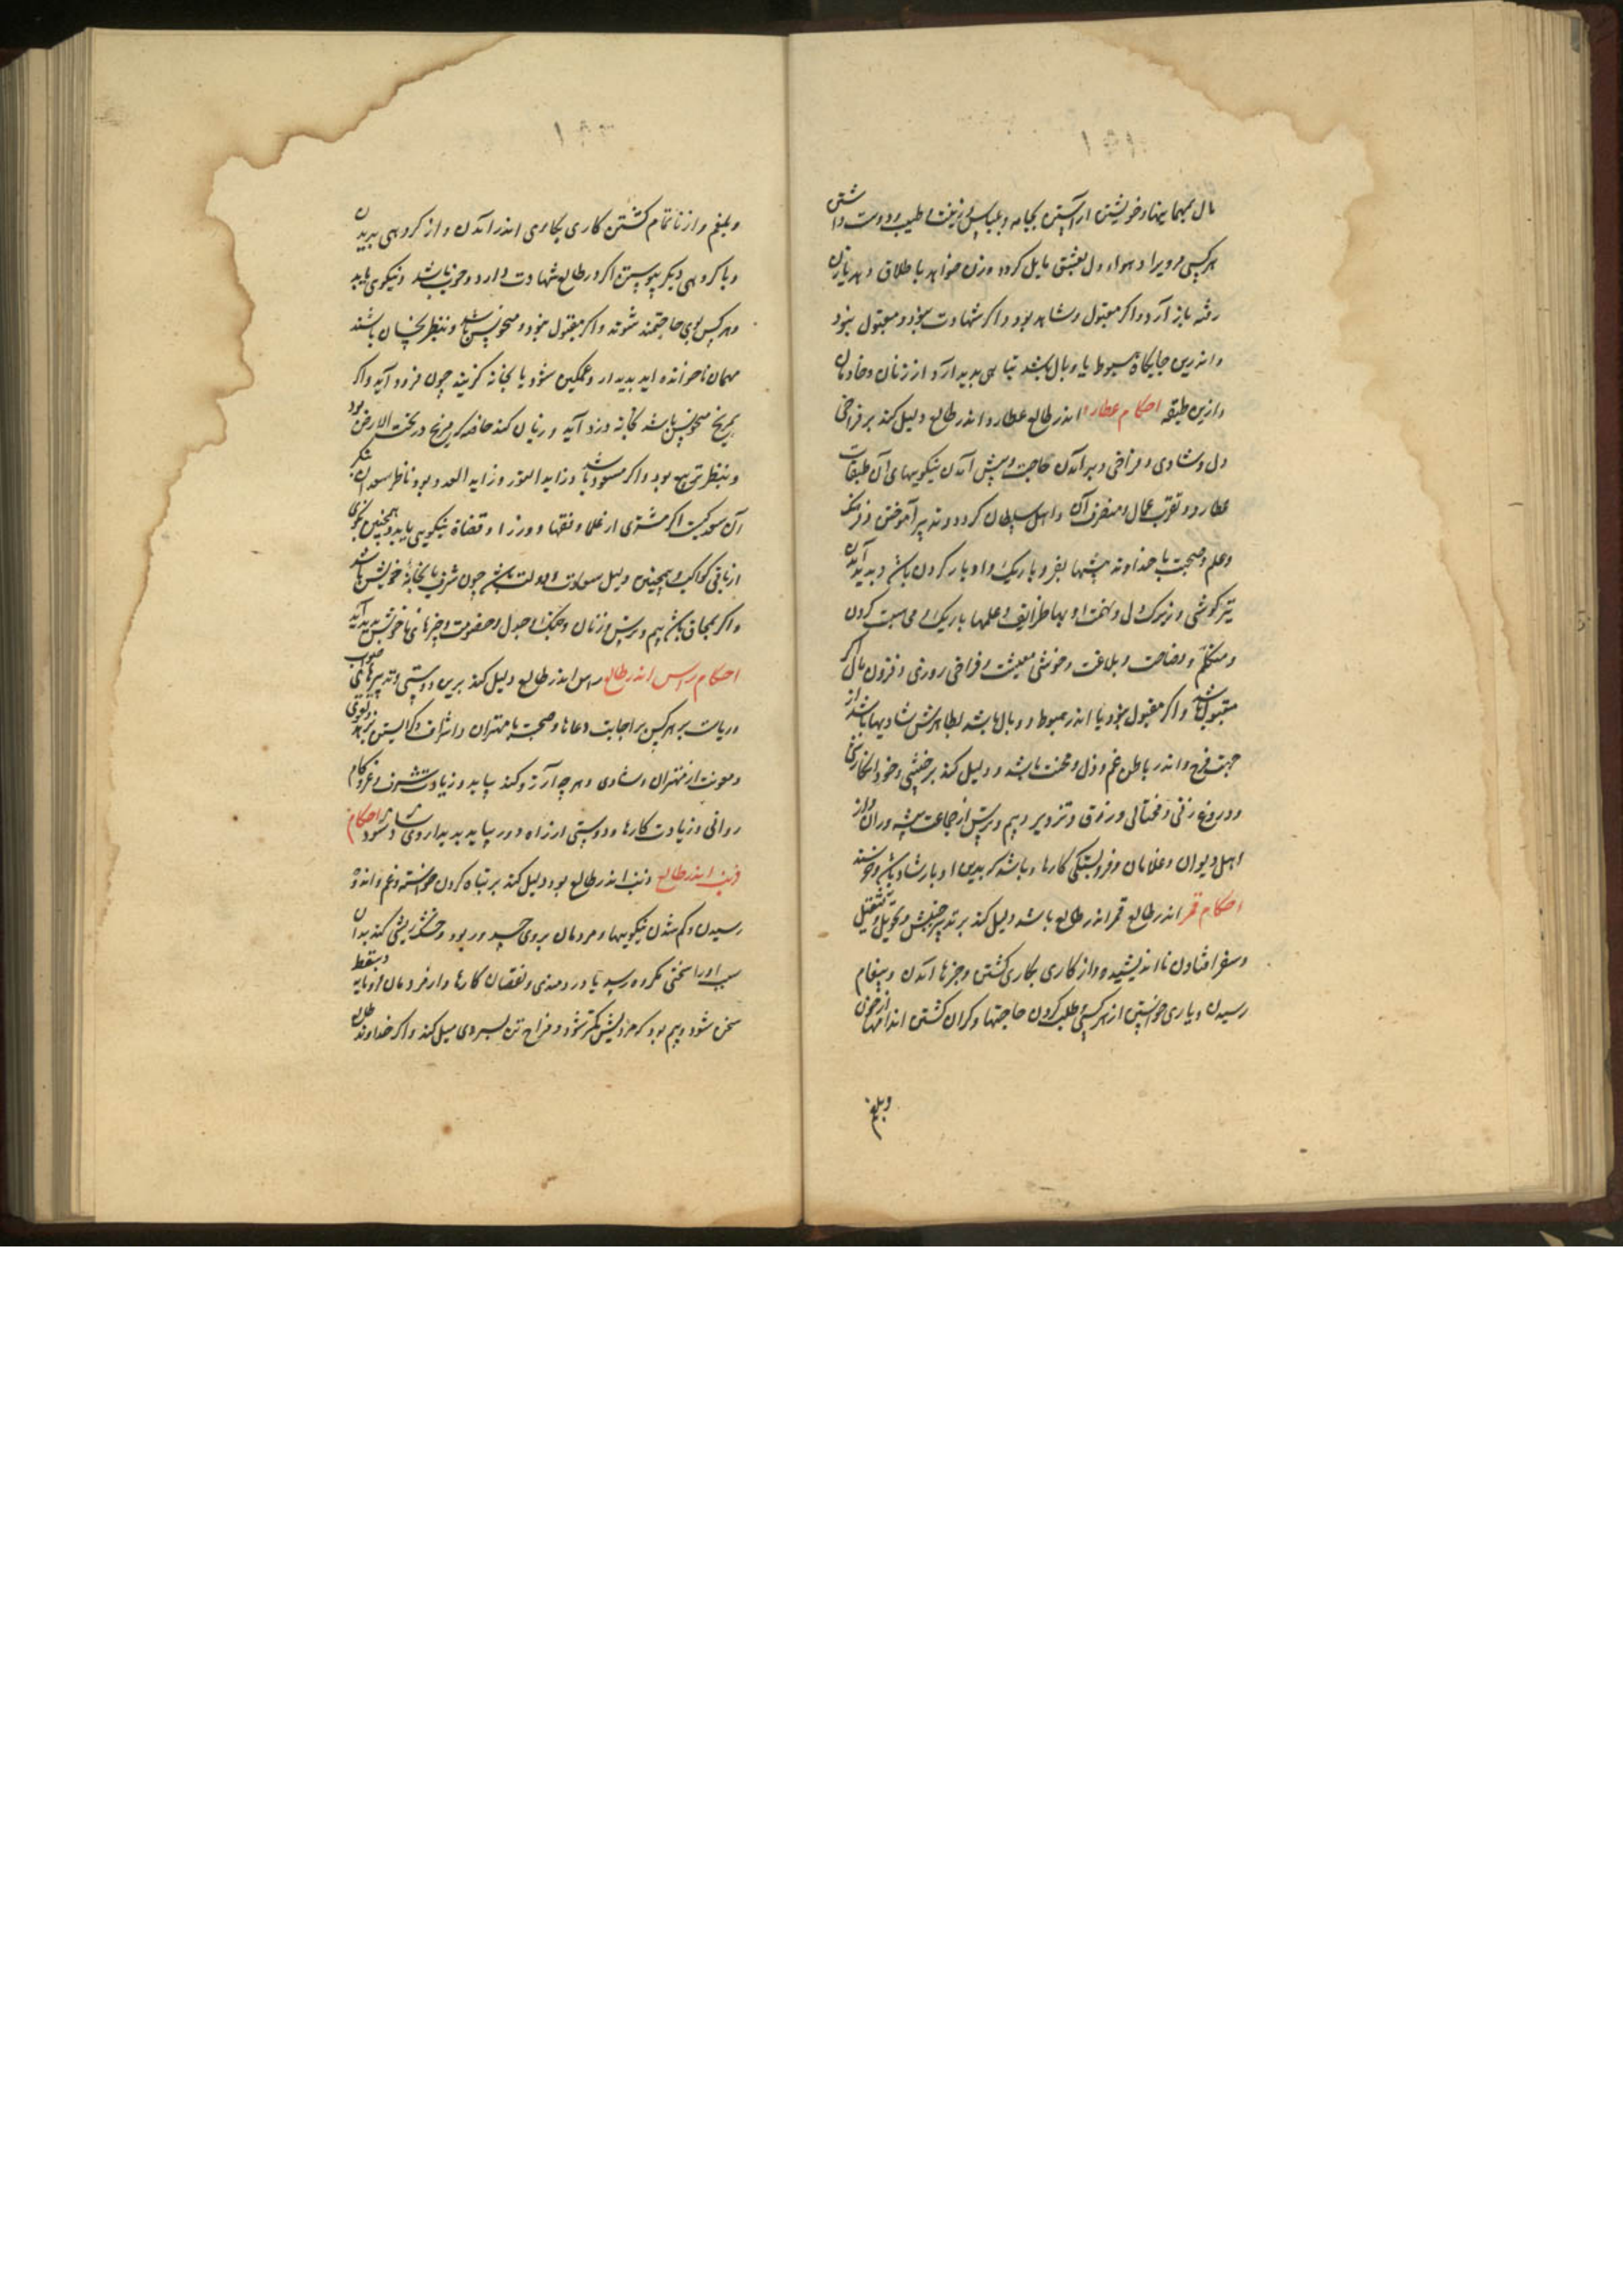 مال بمهمانیها و خویشتن آراستن بجامه و لباس و زینت و طیب و دوست داشتن
هر کسی مرویرا و هواء دل بعشق مایل کردد و زن خواهد با طلاق دهد یا زن
رفته باز آرد و اکر مقبول و شاهد بود و اکر شهادت نبود و مقبول نبود
و اندرین جایکاه بهبوط یا وبال باشد تباهی پدید آرد از زنان و خادمان
و ازین طبقه احکام عطارد اندر طالع عطارد اندر طالع دلیل کند بر فراخی
دل و شادی و فراخی و بر آمدن حاجت و پیش آمدن نیکوییهای آن طبقات
عطارد و تقرب عمال و متصرفان و اهل سلطان کردد و تدبیر آموختن و فرهنک
و علم و صحبت با خداوند پیشها بغر و باریک و ادبار کردن باشد و پدید آمدن
تیز کوشی و زیرک دل و لغت ادبها ظرایف و علمها باریک و محاسبت کردن
و متکلم و فصاحت و بلاغت و خوشی معیشت و فراخی روزی و فزون مال اکر
مقبول باشد و اکر مقبول نبود یا اندر هبوط و وبال باشد بظاهرش شادیها باشد از
جهت فرح و اندر باطن غم و ذل و محنت باشد و دلیل کند بر خشی و خود انکاری
و دروغ زنی و محتالی و زرق و تزویر و بیم و ترس از جماعت پیشه وران و از
اهل دیوان و غلامان و فروبستکی کارها و باشد که بدین ادبار شاد باشد و خرسند
احکام قمر اندر طالع قمر اندر طالع باشد دلیل کند بر تدبیر جنبش و تحویل و تشغیل
و سفر افتادن نااندیشیده و از کاری بکاری کشتن و خبرها آمدن و پیغام
رسیدن و یاری خواستن از هر کسی و طلب کردن حاجتها و کران کشتن اندامها از خون
و بلغم
و بلغم و از ناتمام کشتن کاری بکاری اندر آمدن و از کروهی بریدن
و با کروهی دیکر پیوستن و اکر در طالع شهادت دارد و خوب باشد و نیکوی یابد
و هر کس بوی حاجتمند شوند و اکر مقبول نبود و منحوس باشد و بنظر نحسان باشند
مهمان ناخوانده اید پدیدار و غمکین شود یا بخانه کزیند چون فرود آید و اکر
بمریخ منحوس باشد بخانه دزد آید و زیان کند خاصه که مریخ در تحت الارض بود
و بنظر تربیع بود و اکر مسعود باشد و زاید النور و زاید العدد بود و ناظر سعدان بنکر
آن سعد کیست اکر مشتری از علما و فقها و وزرا و قضاة نیکویی یابد و همچنین نکوی
از باقی کواکب و همچنین دلیل سعادت و دولت باشد چون شرف یا بخانهٔ خویش باشد
و اکر بمحاق باشد بیم و ترس و زنان و جنک و جدل و خصومت و چیزهای ناخوش پدید آید
احکام راس اندر طالع راس اندر طالع دلیل کند برین دوستی و تدبیرهای صواب
و ریاست بر هر کس بر اجابت دعاها و صحبت با مهتران و اشراف و نکریستن بزهد و تقوی
و معونت از مهتران و شادی و هر چه آرزو کند بیابد و زیادت شرف و عز و کام
روانی و زیادت کارها و دوستی از راه دور بیاید پدیدار وی شاد شود احکام
ذنب اندر طالع ذنب اندر طالع بود دلیل کند بر تباه کردن خواسته و غم و اندوه
رسیدن و کم شدن نیکوییها و مردمان بروی حسد ور بود و خنک ریشی کند بدان
سبب او را سختی مکروه رسد یا دردمندی و نقصان کارها و از فرومان فرومایه و سقط
سخن شود و بیم بود که مزدیش کمتر شود و فراخ تن بسردی میل کند و اکر خداوند طالع